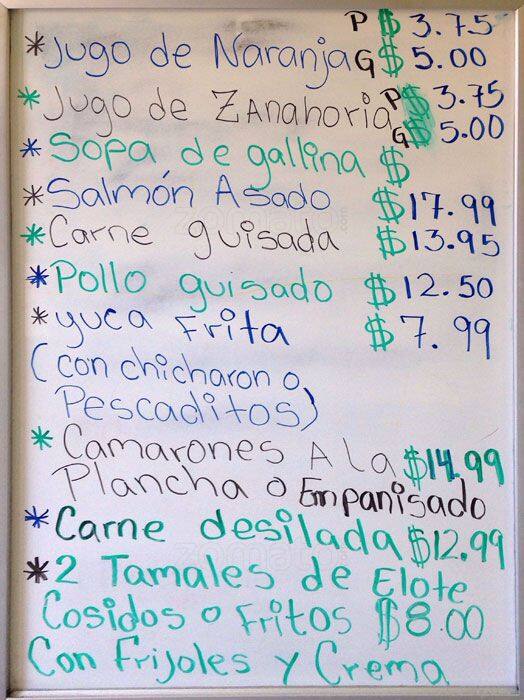 *Jugo de Naranja P $ 3.75
G $ 5.00
*Jugo de Zanahoria P $ 3.75
G $ 5.00
*Sopa de gallina $
*Salmón Asado $17.99
*Carne guisada $13.95
*Pollo guisado $12.50
*yuca Frita $7.99
(con chicharon o
Pescaditos)
*Camarones A la $14.99
Plancha o Empanisado
*Carne desilada $12.99
*2 Tamales de Elote
Cosidos o Fritos $8.00
Con Frijoles y Crema